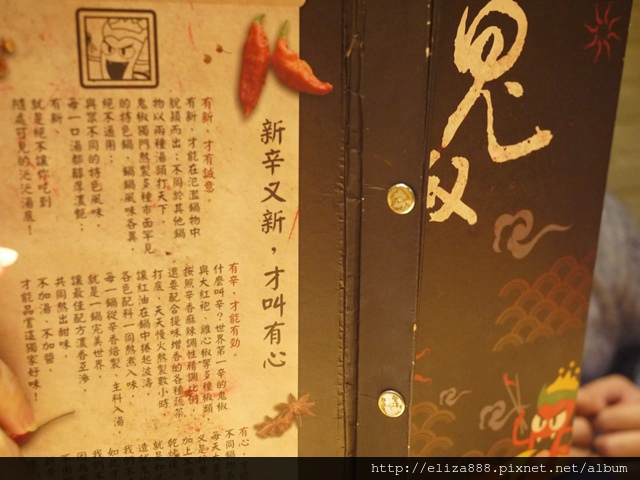 鬼
椒
新辛又新，才叫有心
有新，才有誠意。
有新，才能在氾濫鍋物中
脫穎而出；不同於其他鍋
物以兩種湯頭打天下，
鬼椒獨門熬製多種市面罕見
的特色鍋，鍋鍋風味各異，
絕不通用；
與眾不同的特色風味，
每一口湯都醇厚濃艷；
有新，
就是絕不讓你吃到
隨處可見的泛泛湯底！
有辛，才能有勁。
什麼叫辛？世界第一辛的鬼椒
與大紅袍、雞心椒等多種椒類，
按照辛香麻辣調性精調比例，
還要配合提味增香的各種蔬菜
打底，天天慢火熬製數小時，
讓紅油在鍋中捲起波濤，
各色配料一同熬煮入味，
每一鍋從辛香焙製、主料入湯
就是一鍋完美世界，
讓最佳配方濃香至淨，
共同熬出甜味，
不加湯、不加醬，
才能品嘗這獨家好味！
有心，才
不同鍋
每天
又是
加上
乾
就是
造
我
如
http://eliza888.pixnet.net/album